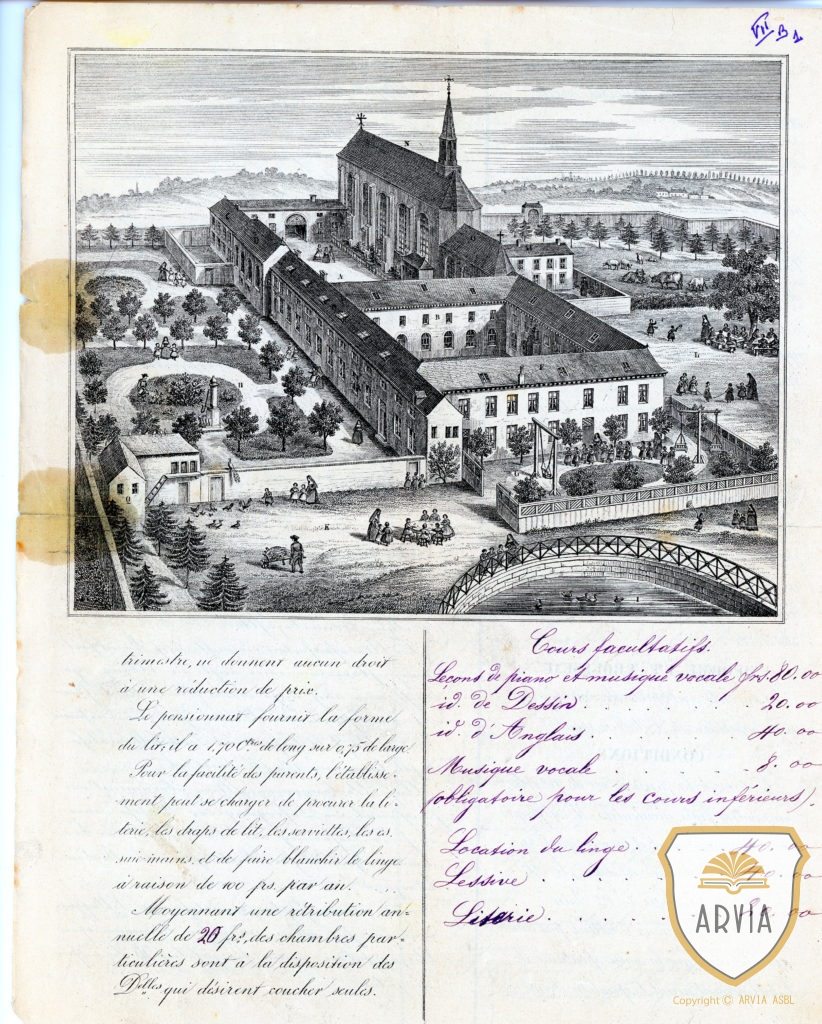 VII B 1
trimestre, ne donnent aucun droit
à une réduction de prix.
Le pensionnat fournit la forme
du lit; il a 1,70 Ctres de long sur 0,75 de large
Pour la facilité des parents, l'établisse-
ment peut se charger de procurer la li-
terie, les draps de lit, les serviettes, les es
suie-mains, et de faire blanchir le linge
à raison de 100 frs. par an.
Moyennant une rétribution an-
nuelle de 20 frs, des chambres par-
ticulières sont à la disposition des
Delles qui désirent coucher seules.
Cours facultatifs.
Leçons de piano et musique vocale frs. 80.00
id. de Dessin . 20.00
id. d'Anglais . . . 40.00
Musique vocale . . . 8.00
(obligatoire pour les cours inférieurs).
Location du linge . . . 40.00
Lessive . . . . 40.00
Literie . . . . . 00
ARVIA
Copyright © ARVIA ASBL